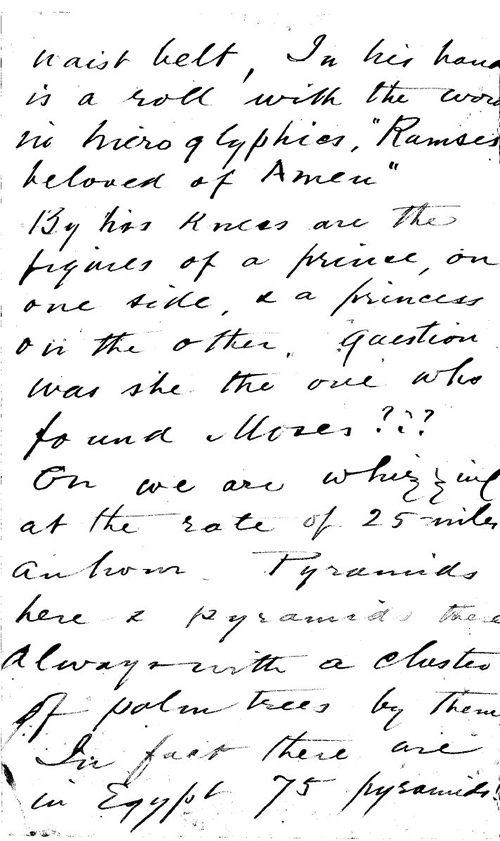 waist belt, In his hand
is a roll with the word
in hieroglyphics, "Ramses
beloved of Amen"
By his knees are the
figures of a prince, on
one side, & a princess
on the other. Question
was she the one who
found Moses???
On we are whizzing
at the rate of 25 miles
an hour Pyramids
here & pyramids there
Always with a cluster
of palm trees by them
In fact there are
in Egypt 75 pyramids!